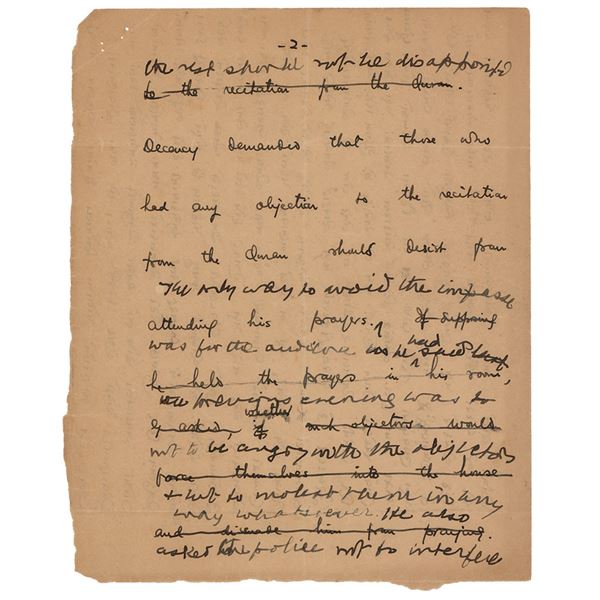 -2-
the rest should not be disappointed
to the recitation from the Quran.
Decency demanded that those who
had any objection to the recitation
from the Quran should desist from
The only way to avoid the impasse
attending his prayers. ^ If suffering
was for the audience as he had said last
he held the prayers in his room,
the previous evening was to
Gandhi asked, whether if such objectors would
not to be angry with the objectors
force themselves into the house
& not to molest them in any
way whatsoever. He also
and dissuade him from praying.
asked the police not to interfere